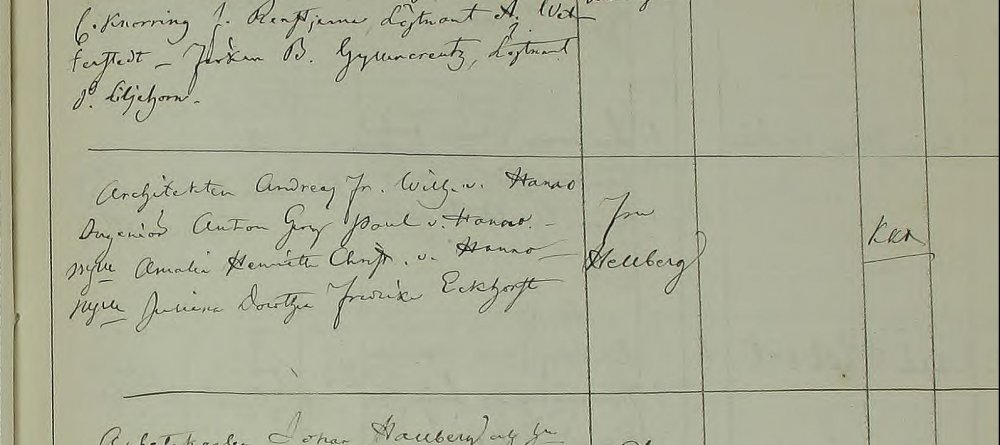 C. Knorring J. Renstjerna Löjtnant A. Wet-
terstedt – Fröken B. Gyllencreutz, Löjtnant
P. Liljehorn.
Architekten Andreas Fr. Wilh. v. Hanno
Ingeniör Anton Georg Paul v. Hanno. –
Mlle Amalia Henriette Christ. v. Hanno –
Mlle Juliana Dorothea Fredrike Eckhorst
Fru
Hellberg
Kka
Johan Hallberg och